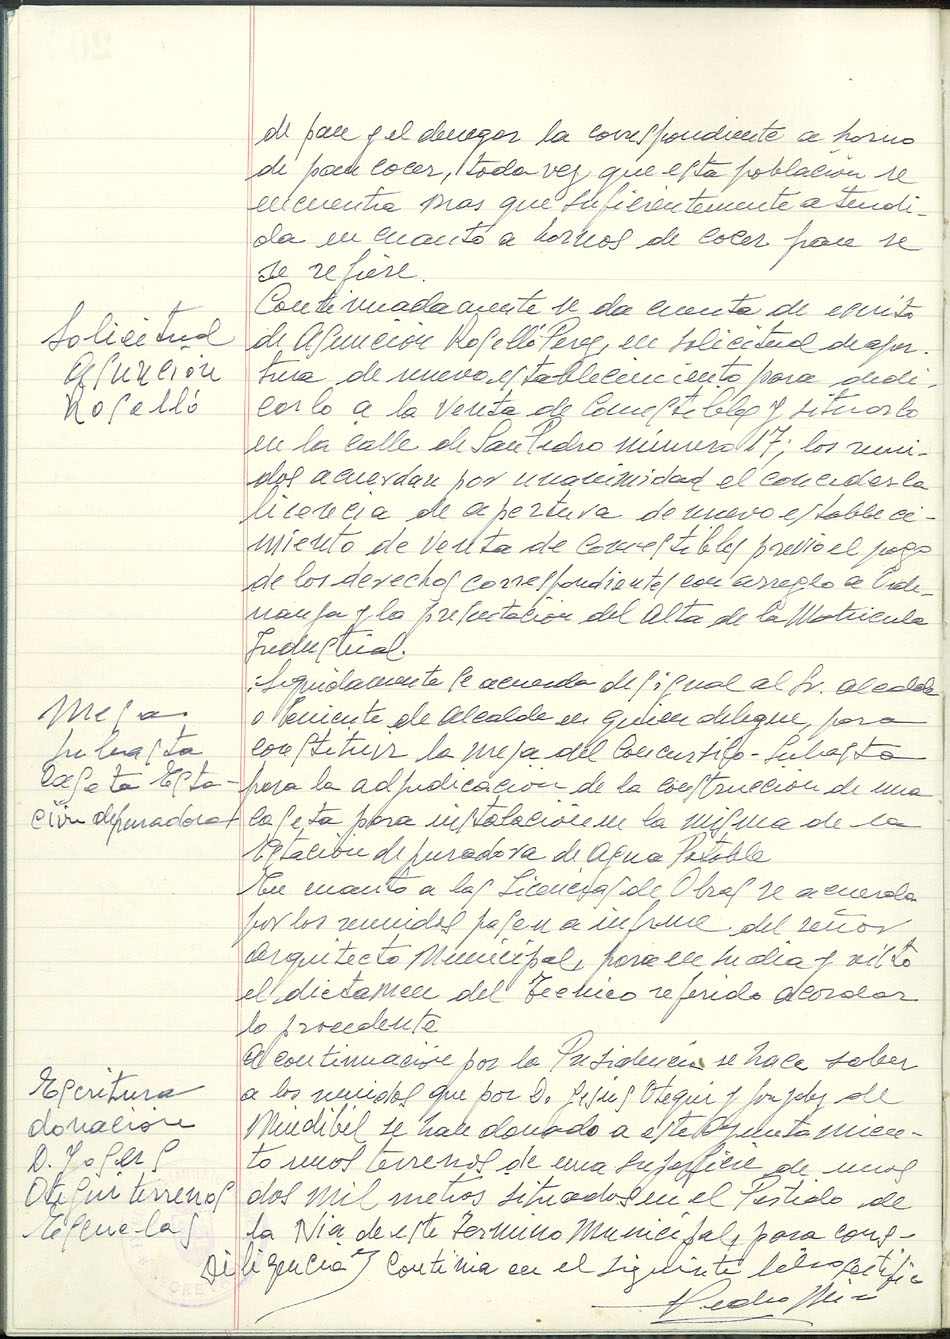 de pan y el denegar la correspondiente a horno
de pan cocer, toda vez, que esta población se
encuentra mas que suficientemente atendi-
da en cuanto a hornos de cocer pan se
se refiere.
Solicitud
Asunción
Roselló
Continuadamente se da cuenta de escrito
de Asunción Roselló Perez, en solicitud de aper-
tura de nuevo establecimiento para dedi-
carlo a la venta de Comestibles y situarlo
en la calle de San Pedro número 17; los reuni-
dos acuerdan por unanimidad el conceder la
licencia de apertura de nuevo estableci-
miento de venta de comestibles previo el pago
de los derechos correspondientes con arreglo a Orde-
nanza y la presentación del Alta de la Matricula
Industrial.
Mesa
subasta
Caseta Esta-
ción depuradora
Seguidamente se acuerda designal al Sr. Alcalde
o Teniente de Alcalde en quien delegue, para
constituir la mesa del Concurso-Subasta
para la adjudicación de la construcción de una
caseta para instalación en la misma de la
Estación depuradora de Agua Potable
En cuanto a las Licencias de Obras se acuerda
por los reunidos pasen a informe del señor
Arquitecto Municipal, para en su dia y visto
el dictamen del Tecnico referido acordar
lo procedente
Escritura
donación
D.
Otegui terrenos
Escuelas
A continuación por la Presidencia se hace saber
a los reunidos que por D. Jesús Otegui y de
se han donado a este Ayuntamien-
to unos terrenos de una superficie de unos
dos mil metros situados en el Partido de
la Via de este Termino Municipal, para cons-
Diligencia) Continua en el siguiente libro certifico
Pedro